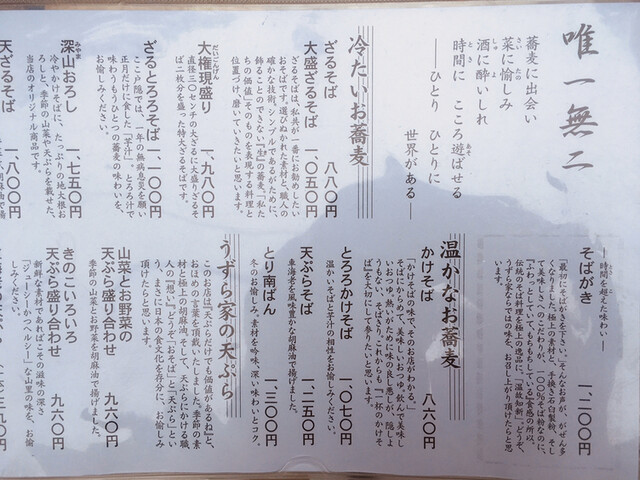 唯一無二
蕎麦に出会い
菜に愉しみ
酒に酔いしれ
時間に こころ遊ばせる
―ひとり ひとりに
世界がある―
冷たいお蕎麦
ざるそば 八八〇円
大盛ざるそば 一、〇五〇円
ざるそばは、私共が一番にお勧めしたい
おそばです。選びぬかれた素材と、職人の
確かな技術。シンプルであるがために、
飾ることのできない『生』の蕎麦。『私た
ちの価値』そのものを表現する料理と
位置づけ、磨いていきたいと思います。
大権現盛り 一、九八〇円
直径三〇センチの大ざるに大盛りざるそ
ば二枚分を盛った特大ざるそばです。
ざるとろろそば 一、一〇〇円
ここ戸隠では、一年の無病息災を願い
正月だけに食した「芋汁」。とろろ汁で
味わうもうひとつの蕎麦の味わいを、
お愉しみください。
深山おろし 一、七五〇円
冷やかけそばに、たっぷりの地大根お
ろしと、季節の山菜や天ぷらを載せた、
当店のオリジナル商品です。
天ざるそば 一、八〇〇円
―時間を越えた味わい―
そばがき 一、二〇〇円
「最初にそばがきを下さい。」そんなお声が、がぜん多
くなりました。極上の素材と、手挽き石臼製粉、そし
て美味しさへのこだわりが、一〇〇％そば粉なのに、
「ふわっ」として、もちもちしてる食感の所以。
伝統のそば料理を極上の逸品に、「温故知新」どうぞ、
うずら家ならではの味を、お召し上が頂けたらと思
います。
温かなお蕎麦
かけそば 八六〇円
「かけそばの味で、そのお店がわかる。」
そばにからめて、美味しいおつゆ。飲んで美味し
いおつゆ。熱いがために味の良し悪しが、隠しよ
うもないかけそばだから、これからも「一杯のかけそ
ば」を大切にして参りたいと思います。
とろろかけそば 一、〇七〇円
温かいそばと芋汁の相性をお愉しみください。
天ぷらそば 一、二五〇円
車海老を風味豊かな胡麻油で揚げました。
とり南ばん 一、三〇〇円
冬のお愉しみ。素材を吟味、深い味わいとコク。
うずら家の天ぷら
「このお店は「天ぷら」だけでも価値があるね」と、
おほめの言葉を頂戴いたしました。季節の素
材と極上の胡麻油、そして、天ぷらにかける職
人の「想い」。うずら家の「おそば」と「天ぷら」とい
う、まさに日本の食文化を存分に、お愉しみ
頂けたらと思います。
山菜とお野菜の
天ぷら盛り合わせ 九六〇円
季節の山菜とお野菜を胡麻油で揚げました。
きのこいろいろ
天ぷら盛り合わせ 九六〇円
新鮮な素材であればこその滋味の深さ
「ジューシーかつヘルシー」な山里の味を、お愉
しみください。